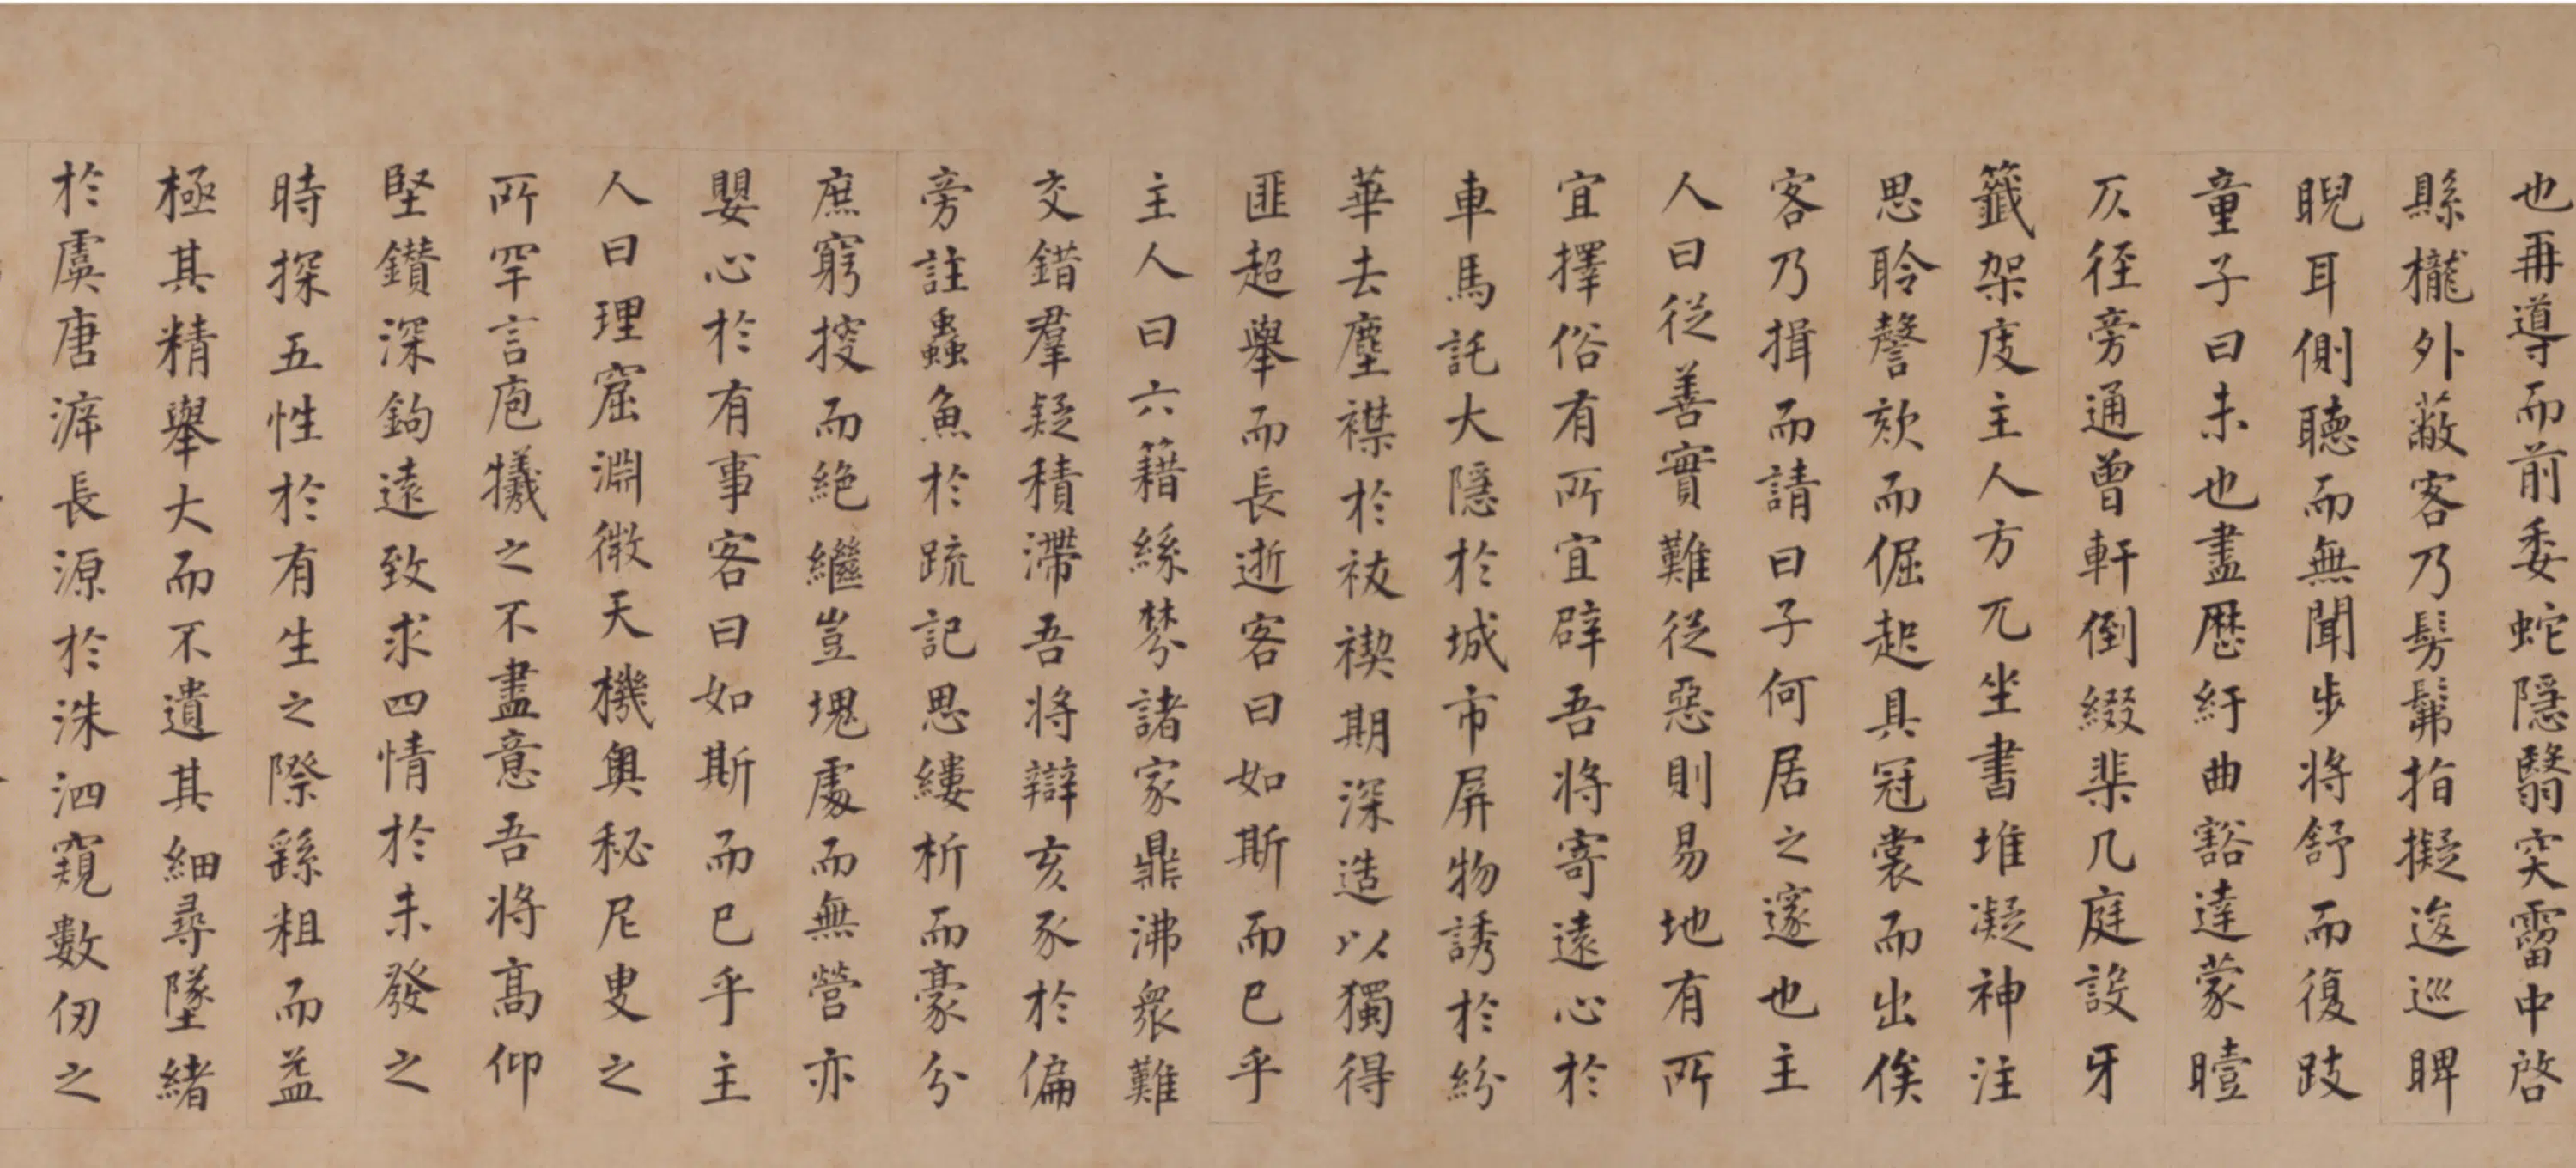 也再導而前委蛇隱翳突霤中啓
縣櫳外蔽客乃髣髴指擬逡巡睥
睨耳側聽而無聞步將舒而復跂
童子曰未也盡歷紆曲豁達蒙曀
仄徑旁通曾軒倒綴棐几庭設牙
籤架庋主人方兀坐書堆凝神注
思聆謦欬而倔起具冠裳而出俟
客乃揖而請曰子何居之邃也主
人曰從善實難從惡則易地有所
宜擇俗有所宜辟吾將寄遠心於
車馬託大隱於城市屏物誘於紛
華去塵襟於祓禊期深造以獨得
匪超舉而長逝客曰如斯而已乎
主人曰六籍絲棼諸家鼎沸衆難
交錯羣疑積滯吾將辯亥豕於偏
旁註蟲魚於疏記思縷析而豪分
庶窮挍而絶繼豈塊處而無營亦
嬰心於有事客曰如斯而已乎主
人曰理窟淵微天機奧秘尼叟之
所罕言庖犧之不盡意吾將高仰
堅鑽深鉤遠致求四情於未發之
時探五性於有生之際繇粗而益
極其精舉大而不遺其細尋墜緒
於虞唐滓長源於洙泗窺數仞之